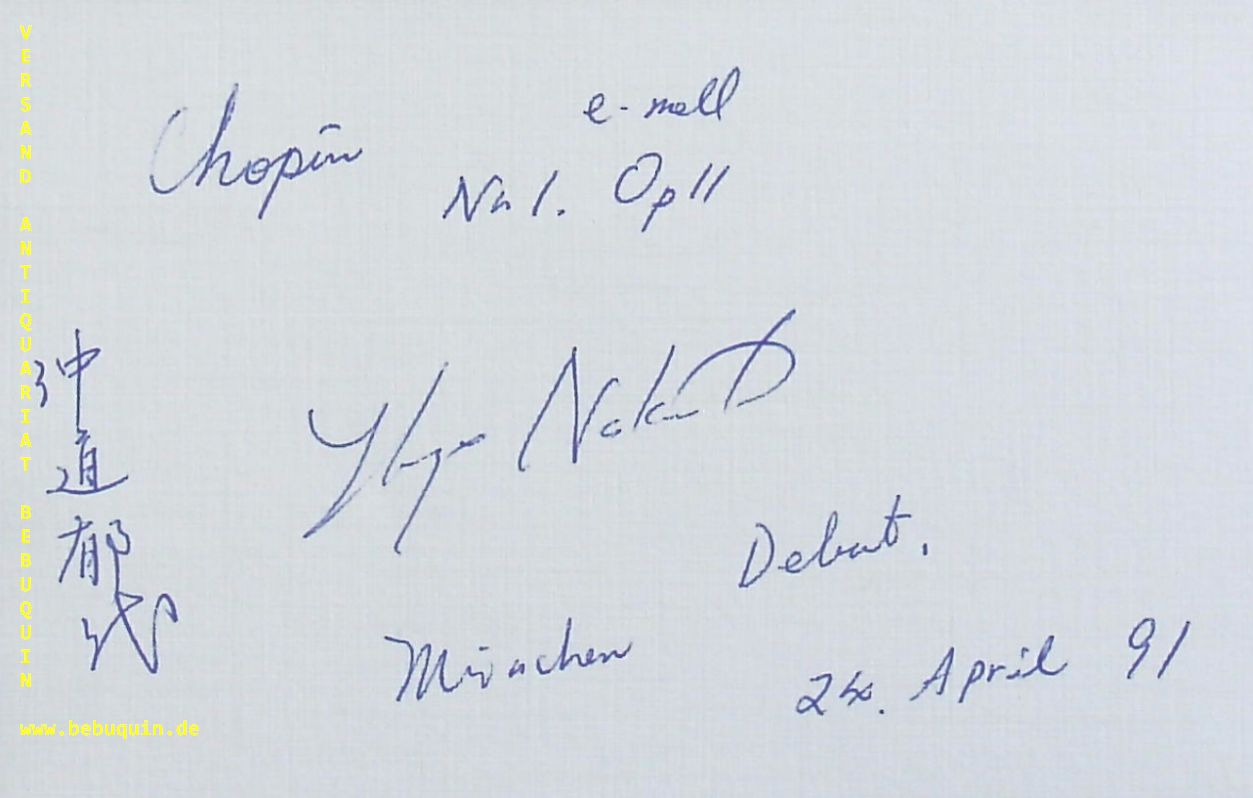 Chopin
e-moll
No 1. Op 11
仲道郁代
Ikuyo Nakamichi
Debut.
München
24. April 91
VERSAND ANTIQUARIAT BEBUQUIN
www.bebuquin.de